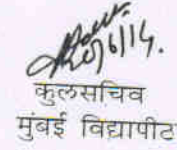 20/6/14.
कुलसचिव
मुंबई विद्यापीठ